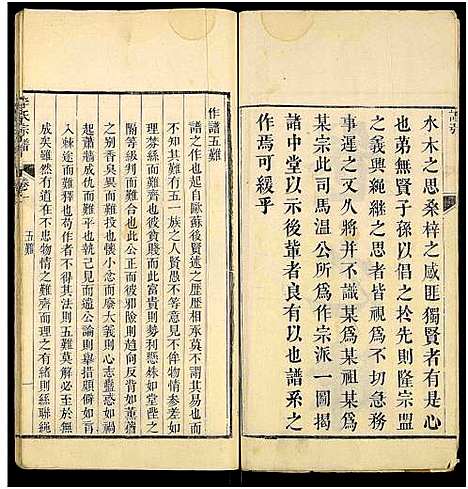 水木之思桑梓之感匪獨賢者有是心
也弟無賢子孫以倡之於先則隆宗盟
之義興繩繼之思者視為不切急務
事遲之又久將并不識某為某祖某為
某宗此司馬溫公所為作宗派一圖揭
諸中堂以示後輩者良有以也譜系之
作焉可緩乎
作譜五難
譜之作也起自歐蘇後賢述之歷歷相承莫不詳
不知其難有五一族之人賢愚不等物情參差如
理棼絲而難齊也貧賤而比富貴則勢利懸殊如堂陛之
隔等威而難聯也公正而彼邪險則趨向反背如薰蕕
之別香臭異而難投也樓小念而廢大義則心志齟齬
起蕭牆成仇而難合也執己見而違公論則舉措頗僻如
入棘途而難釋也苟作者不得其法則五難莫解必不
成矣雖然有道在不忠物情之難齊而理之則絲聯繩
氏宗譜
卷一
五難